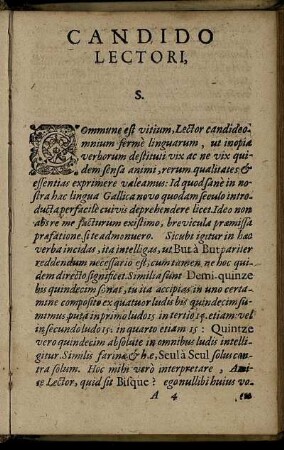 CANDIDO
LECTORI,
S.
Commune est vitium, Lector candide o-
mnium fermè linguarum, ut inopia
verborum destituti vix ac ne vix qui-
dem sensa animi, rerum qualitates &
essentias exprimere valeamus: Id quod sanè in no-
stra hac lingua Gallica novo quodam seculo intro-
ducta perfacilè cuivis deprehendere licet. Ideo non
abs re me facturum existimo, brevicula præmissa
præfatione, si te admonuero. Sicubi igitur in hæc
verba incidas, ita intelligas, ut But à But pariter
reddendum necessariò est, cum tamen ne hoc qui-
dem directò significet. Similia sunt Demi-quinze
bis quindecim sonat, tu ita accipias, in uno certa-
mine composito ex quatuor ludis bis quindecim su-
mimus putà in primo ludo 15 in tertio 15. etiam: vel
in secundo ludo 15: in quarto etiam 15: Quintze
vero quindecim absolutè in omnibus ludis intelli-
gitur. Similis farinæ & hæ, Seul à Seul solus con-
tra solum. Hoc mihi verò interpretare, Ami-
ce Lector, quid sit Bisque? ego nullibi hujus vo-
A 4